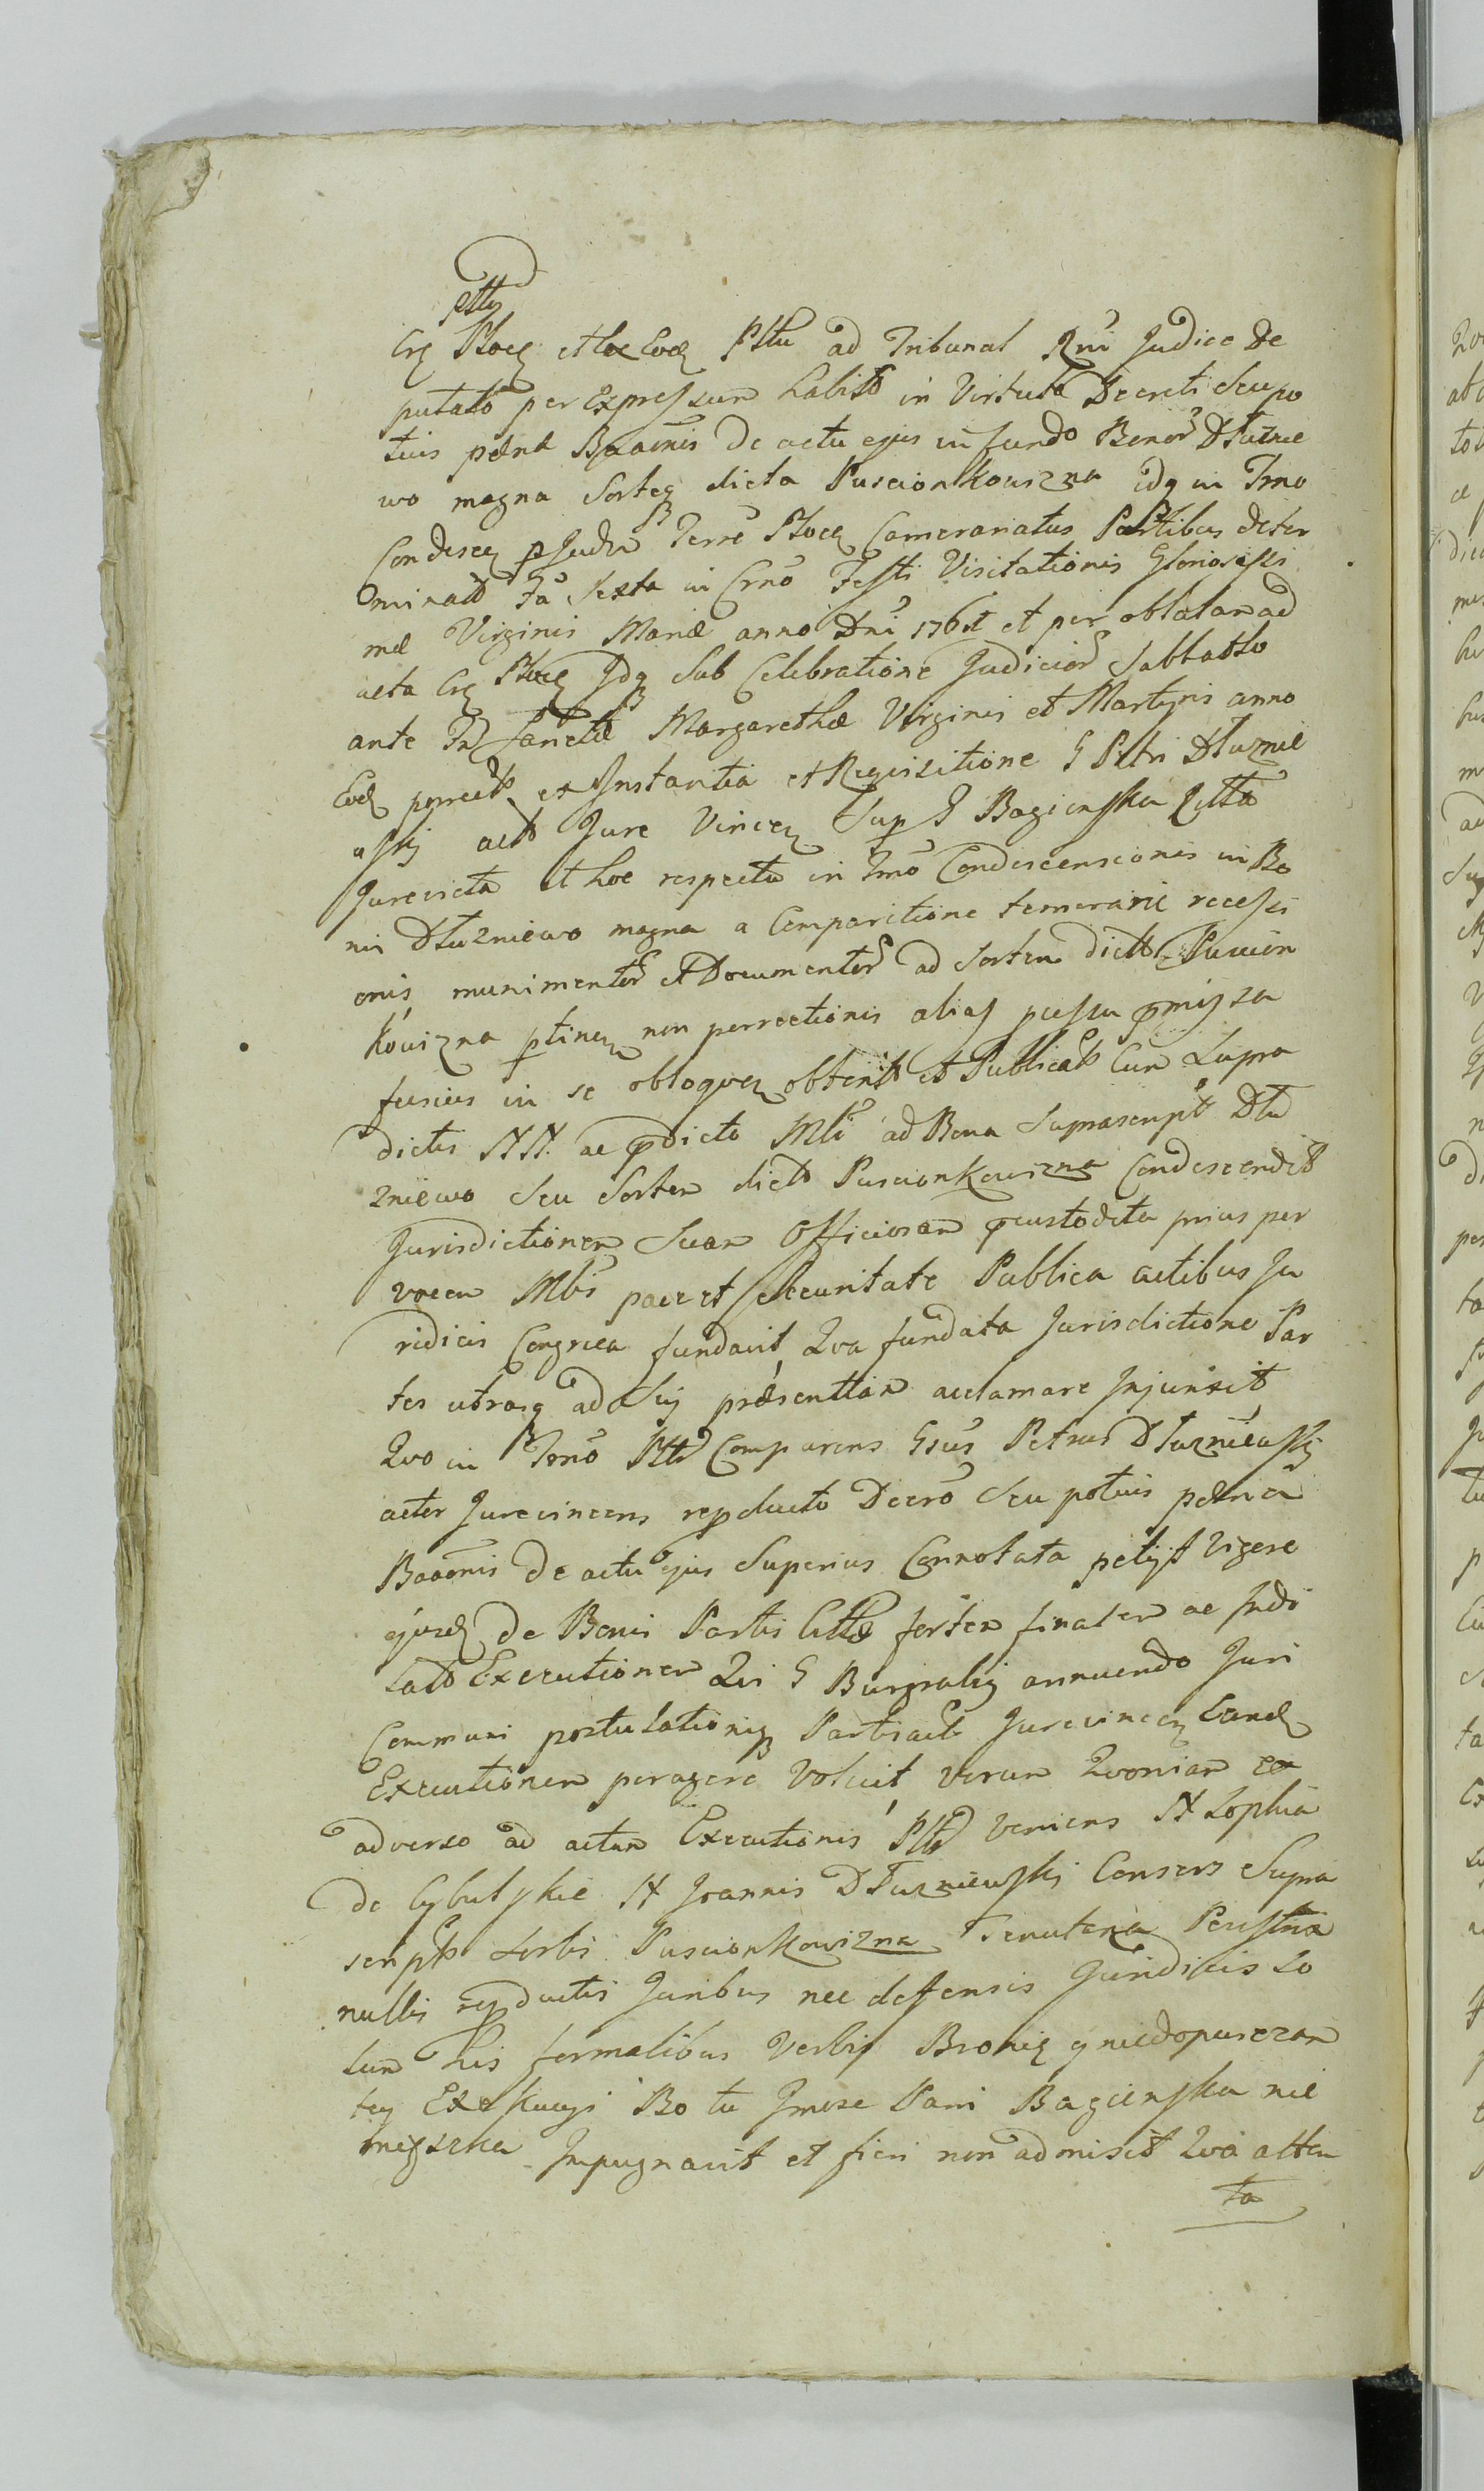 Crg Plocen et hoc Eod Pttu ad Tribunal Rni Judice De
putato per Expressum habito in Virtute Decreti Seu po
tius pdena Baaonis De actu ejus in fundo Bonor Dłużnie
wo magna Sorteq dicta Puscionkowizna idq in Tmo
Condescen p Judm Terre Plocen Camerariatus Partibus deter
minato Fa Sexta in Crno Festi Visitationis Gloriosissi
mæ Virginis Mariæ anno Dni 1761 et per oblatam ad
acta Crg Plocen Idq Sub Celebratione Judicior Sabbatho
ante Fm Sanctæ Margarethæ Virginis et Martyris anno
Eod porrecto ex Instantia et Requisitione G Petri Dłuznie
wskij acto Jure Vincen Sup G Bagienska Citta
Jurevicta et hoc respectu in Tmo Condescensionis in Bo
nis Dłuzniewo magna a Comparitione temerarie recessi
onis, munimentor et Documentor ad Sortem dicto Puscion
kowizna ptinen non porrectionis alias pcessu pmissa
fusius in se obloquen obtento et Publicato Cum Supra
dictis NN. ac pdicto Mli ad Bona Suprascript Dłu
zniewo Seu Sortem dicto Puscionkowizna Condescendit
Jurisdictionem Suam Officiosam pcustodita prius per
vocem Mlis pace et Securitate Publica actibus Ju
ridicis Congrua fundavit, Qva fundata Jurisdictione Par
tes utrasq ad Sui præsentiam acclamare Injunxit
Qvo in Tmo Pttr Comparens Gsus Petrus Dłuzniewskij
actor Jurevincens repducto Decro Seu potius pdena
Baaonis De actu ejus Superius Connotata petijt vigore
ejusd de Bonis Partis Cittæ fortem finalem ac Indi
lato Executionem Qui G Burgrabij annuendo Juri
Communi postulationiq Partis act Jurevincen Eand
Executionem peragere Voluit, verum Qvoniam ex
adverso ad actum Executionis Pttr veniens N Sophia
De Cybulskie N Joannis Dłuzniewskij Consors Supra
script Sortis Puscionkowizna Tenutaria
nullis repductis Juribus nec defensis Juridicis So
lum his formalibus Verbis Bronię y niedopuszczam
tey Exekucyi Bo tu Jmosc Pani Bagienska nie
mieszka Impugnavit et fieri non admisit Qva atten
ta